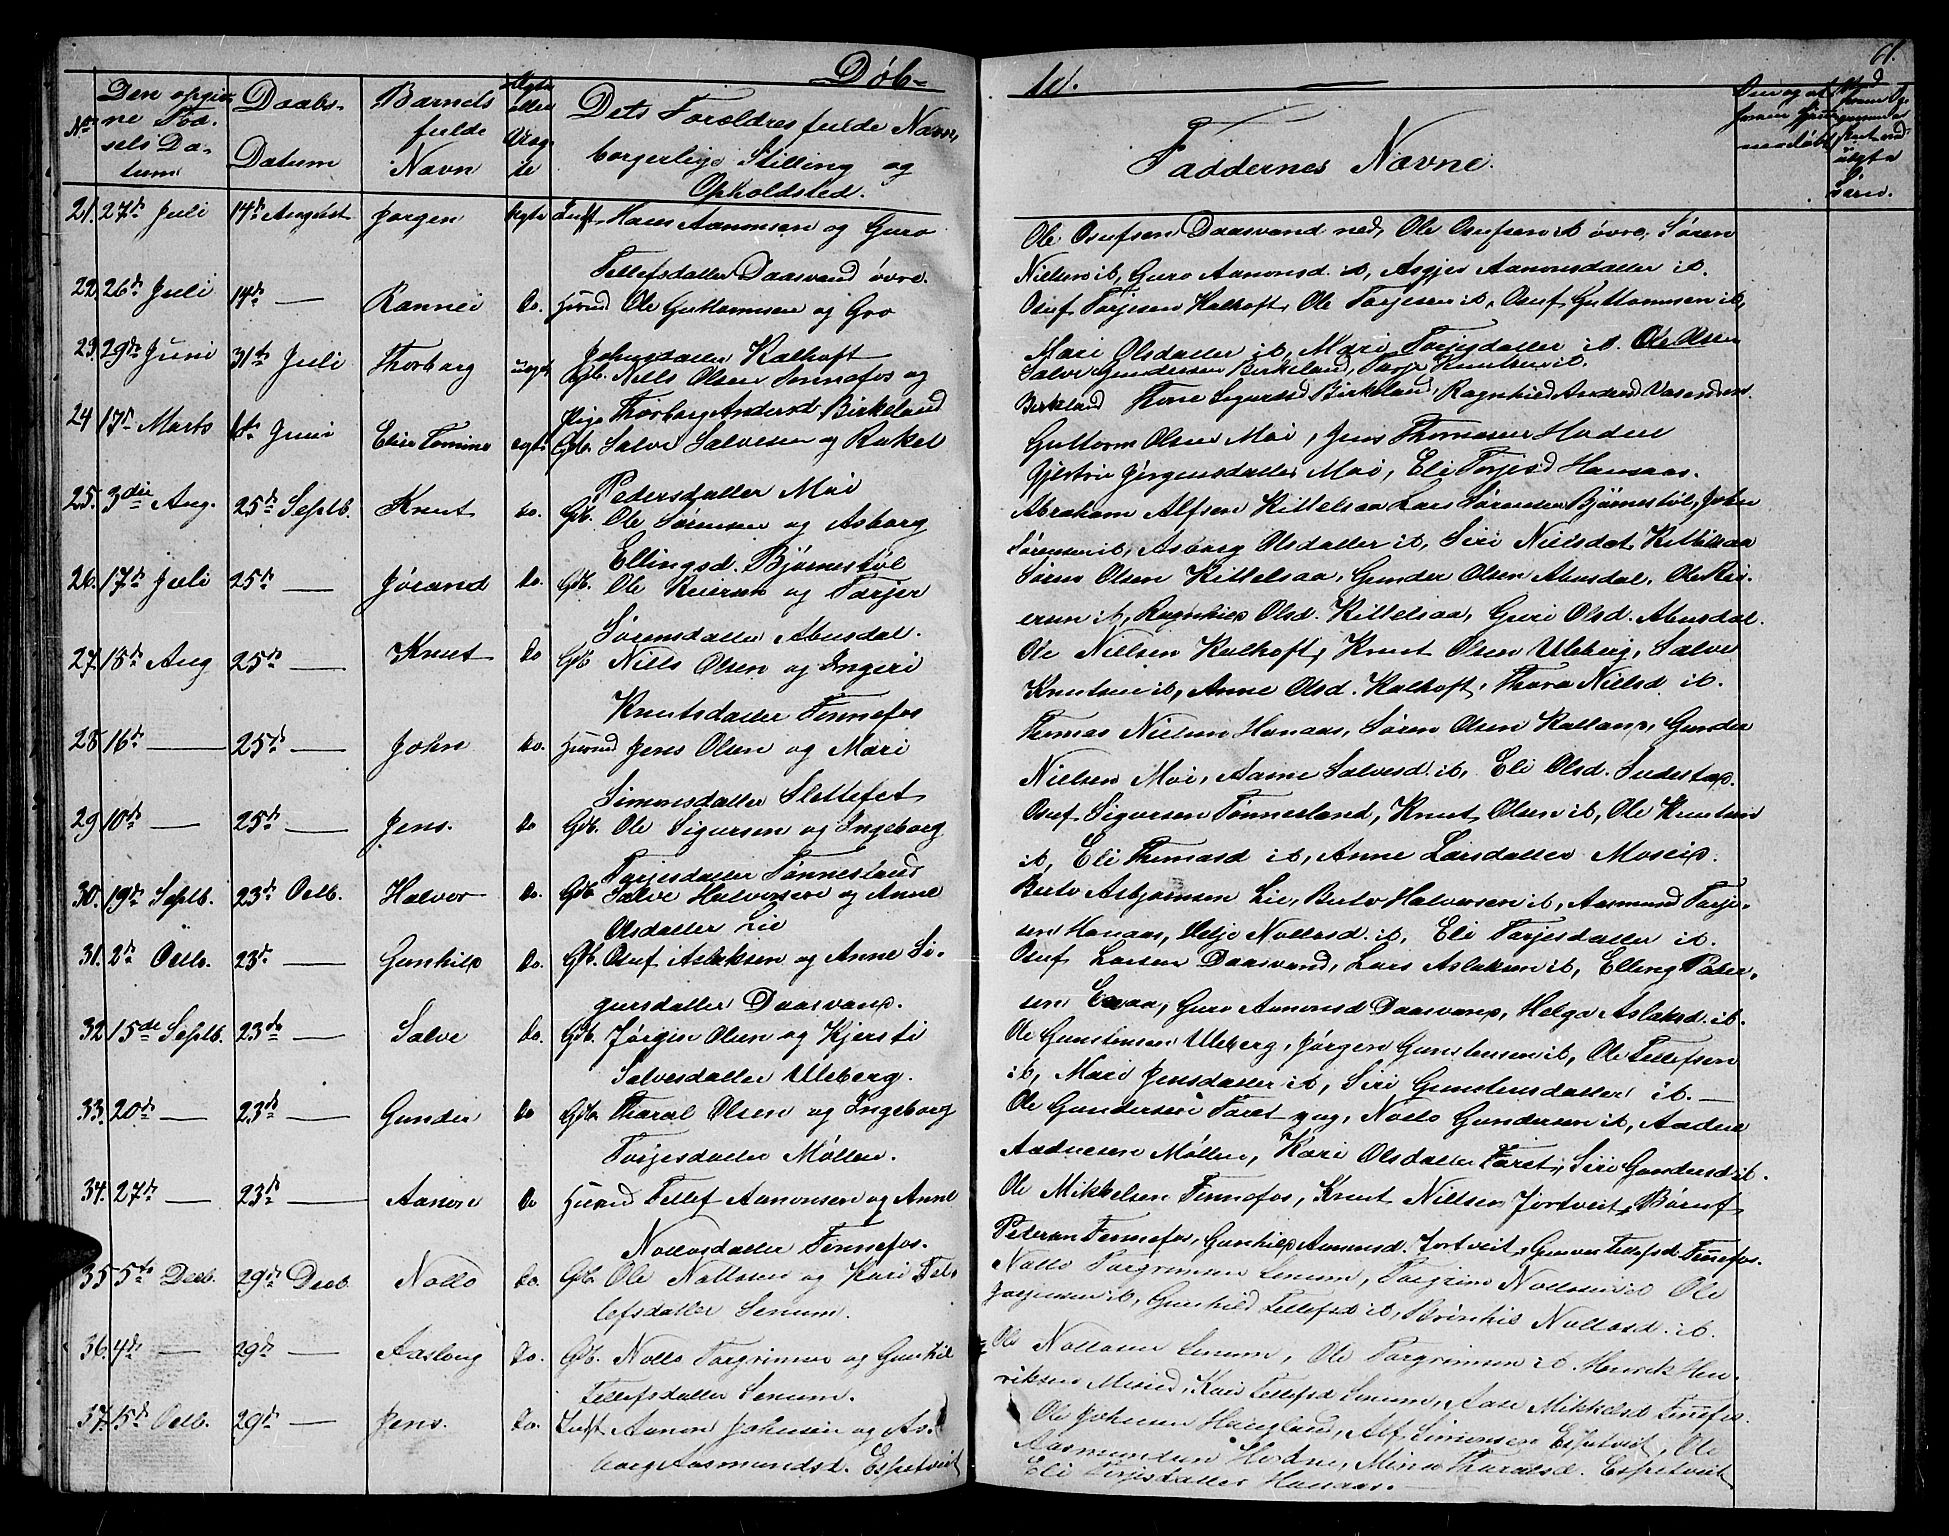 Døb-
te.
61.
No
Den opgiv-
ne Fød-
sels Da-
tum
Daabs-
Datum
Barnets
fulde
Navn
Ægte
eller
Uæg-
te
Dets Forældres fulde Navn,
borgerlige Stilling og
Opholdsted.
Faddernes Navne.
21. 27de Juli 14de August Jørgen Ægte Indst. Hans Aanonsen og Guro
Tellefsdatter Daasvand övre.
Ole Osufsen Daasvand ned, Ole Osufsen ib övre, Sören
Nielsen ib, Guro Aanonsd. ib, Asgjer Aanonsdatter ib.
22. 26de Juli 14de — Rannei Do. Huusd Ole Guttormsen og Gro
Johnsdatter Kalhoft
Osuf Torjesen Kalhoft, Ole Torjesen ib, Osuf Guttormsen ib,
Mari Olsdatter ib, Mari Torjesdatter ib. Ole Olsen
23. 29de Juni 31te Juli Thorborg uægt. Gbr. Nills Olsen Tennefos og
Pige Thorborg Andersd. Birkeland
Salve Gundersen Birkeland, Torje Knutsen ib.
Birkeland Tone Sigursd Birkeland, Ragnhild Andersd Vasenden.
24 17de Marts 1te Juni Elise Tomine ægte Gbr. Salve Salvesen og Rakel
Pedersdatter Moi
Guttorm Olsen Moi, Jens Thomasen Hodne
Kjerstie Jörgensdatter Moi, Eli Torjesd Hanaas.
25. 3die Aug. 25de Septb. Knut do. Gb. Ole Sørensen og Asborg
Ellingsd. Bjørnestøl
Abraham Alfsen Kittelsaa Lars Sørensen Bjørnestøl, John
Sørensen ib, Asborg Olsdatter ib, Siri Nielsdat. Kittelsaa
26. 17de Juli 25de — Jörand do. Gb. Ole Reiersen og Torjer
Sørensdatter Abusdal.
Sören Olsen Kittelsaa, Gunder Olsen Abusdal, Ole Rei-
ersen ib, Ragnhild Olsd. Kittelsaa, Guri Olsd. Abusdal.
27. 18de Aug 25de — Knut do Gb. Nills Olsen og Ingeri
Knutsdatter Tennefos
Ole Nielsen Kalhoft, Knut Olsen Uleberg, Salve
Knutsen ib, Anne Olsd. Kalhoft, Thora Nielsd ib.
28 16de — 25de — John do. Huusd Jens Olsen og Mari
Simonsdatter Slettefet
Thomas Nielsen Hanaas, Sören Olsen Kalland, Gunder
Nielsen Moi, Aasne Salvesd. ib, Eli Olsd.
29 10de — 25de — Jens. do Gb. Ole Sigursen og Ingeborg
Torjesdatter Tønnesland
Osuf Sigursen Tønnesland, Knut Olsen ib, Ole Knutsen
ib, Eli Thomasd ib, Anne Larsdatter Moseid.
30. 19de Septb. 23de Octb. Halvor do. Gb. Salve Halvorsen og Anne
Olsdatter Lie
Berto Asbjørnsen Lie, Berto Halvorsen ib, Aasmund Torje-
sen Hanaas, Helje Nollosd. ib, Eli Torjesdatter ib.
31. 2de Octb. 23de — Gunhild do. Gb. Osuf Aslaksen og Anne Si-
gursdatter Daasvand.
Osuf Larsen Daasvand, Lars Aslaksen ib, Elling Peter-
sen, Guro Aanonsd Daasvand, Helga Aslaksd. ib.
32 15de Septb. 23de — Salve do. Gb. Jørgen Olsen og Kjersti
Salvesdatter Uleberg.
Ole Gunstensen Uleberg, Jørgen Gunstensen ib, Ole Tellefsen
ib, Mari Jensdatter ib, Siri Gunstensdatter ib. —
33. 20de — 23de — Gunder do Gb. Tharal Olsen og Ingeborg
Torjesdatter Møllen.
Ole Gundersen Toret, Nollo Gundersen ib, Aadne
Aadnesen Møllen, Kari Olsdatter Toret, Siri Gundersd ib.
34. 27de — 23de — Aanon do Huusd Tellef Aanonsen og Anne
Nollosdatter Tennefos.
Ole Mikkelsen Tennefos, Knut Nillsen Jortveit, Børuf
Pedersen Tennefos, Gunhild Aanonsd. Jortveit, Gunver Tellefsd Tennefos.
35 5te Decb. 29de Decb. Nollo do. Gb. Ole Nollosen og Kari Tel-
lefsdatter Senum.
Nollo Torgrimsen Senum, Torgrim Nollosen ib Ole
Jorgensen ib, Gunhild Tellefsd ib, Brönhil Nollosd. ib.
36. 4de — 29de — Aasborg do. Gb. Nollo Torgrimsen og Gunhil
Tellefsdatter Senum.
Ole Nollosen Senum, Ole Torgrimsen ib. Henrik Hen-
riksen Moseid, Kari Tellefsd Senum, Aase Mikkelsd Tennefos.
37. 15de Octb. 29de — Jens. do. Indst Aanon Johnsen og As-
borg Aasmundsd. Espetveit
Ole Johnsen Haugland, Alf Simonsen Espetveit, Ole
Aasmundsen Hodne, Mina Tharalsd. Espetveit
Eli Torjesdatter Hanaas. —